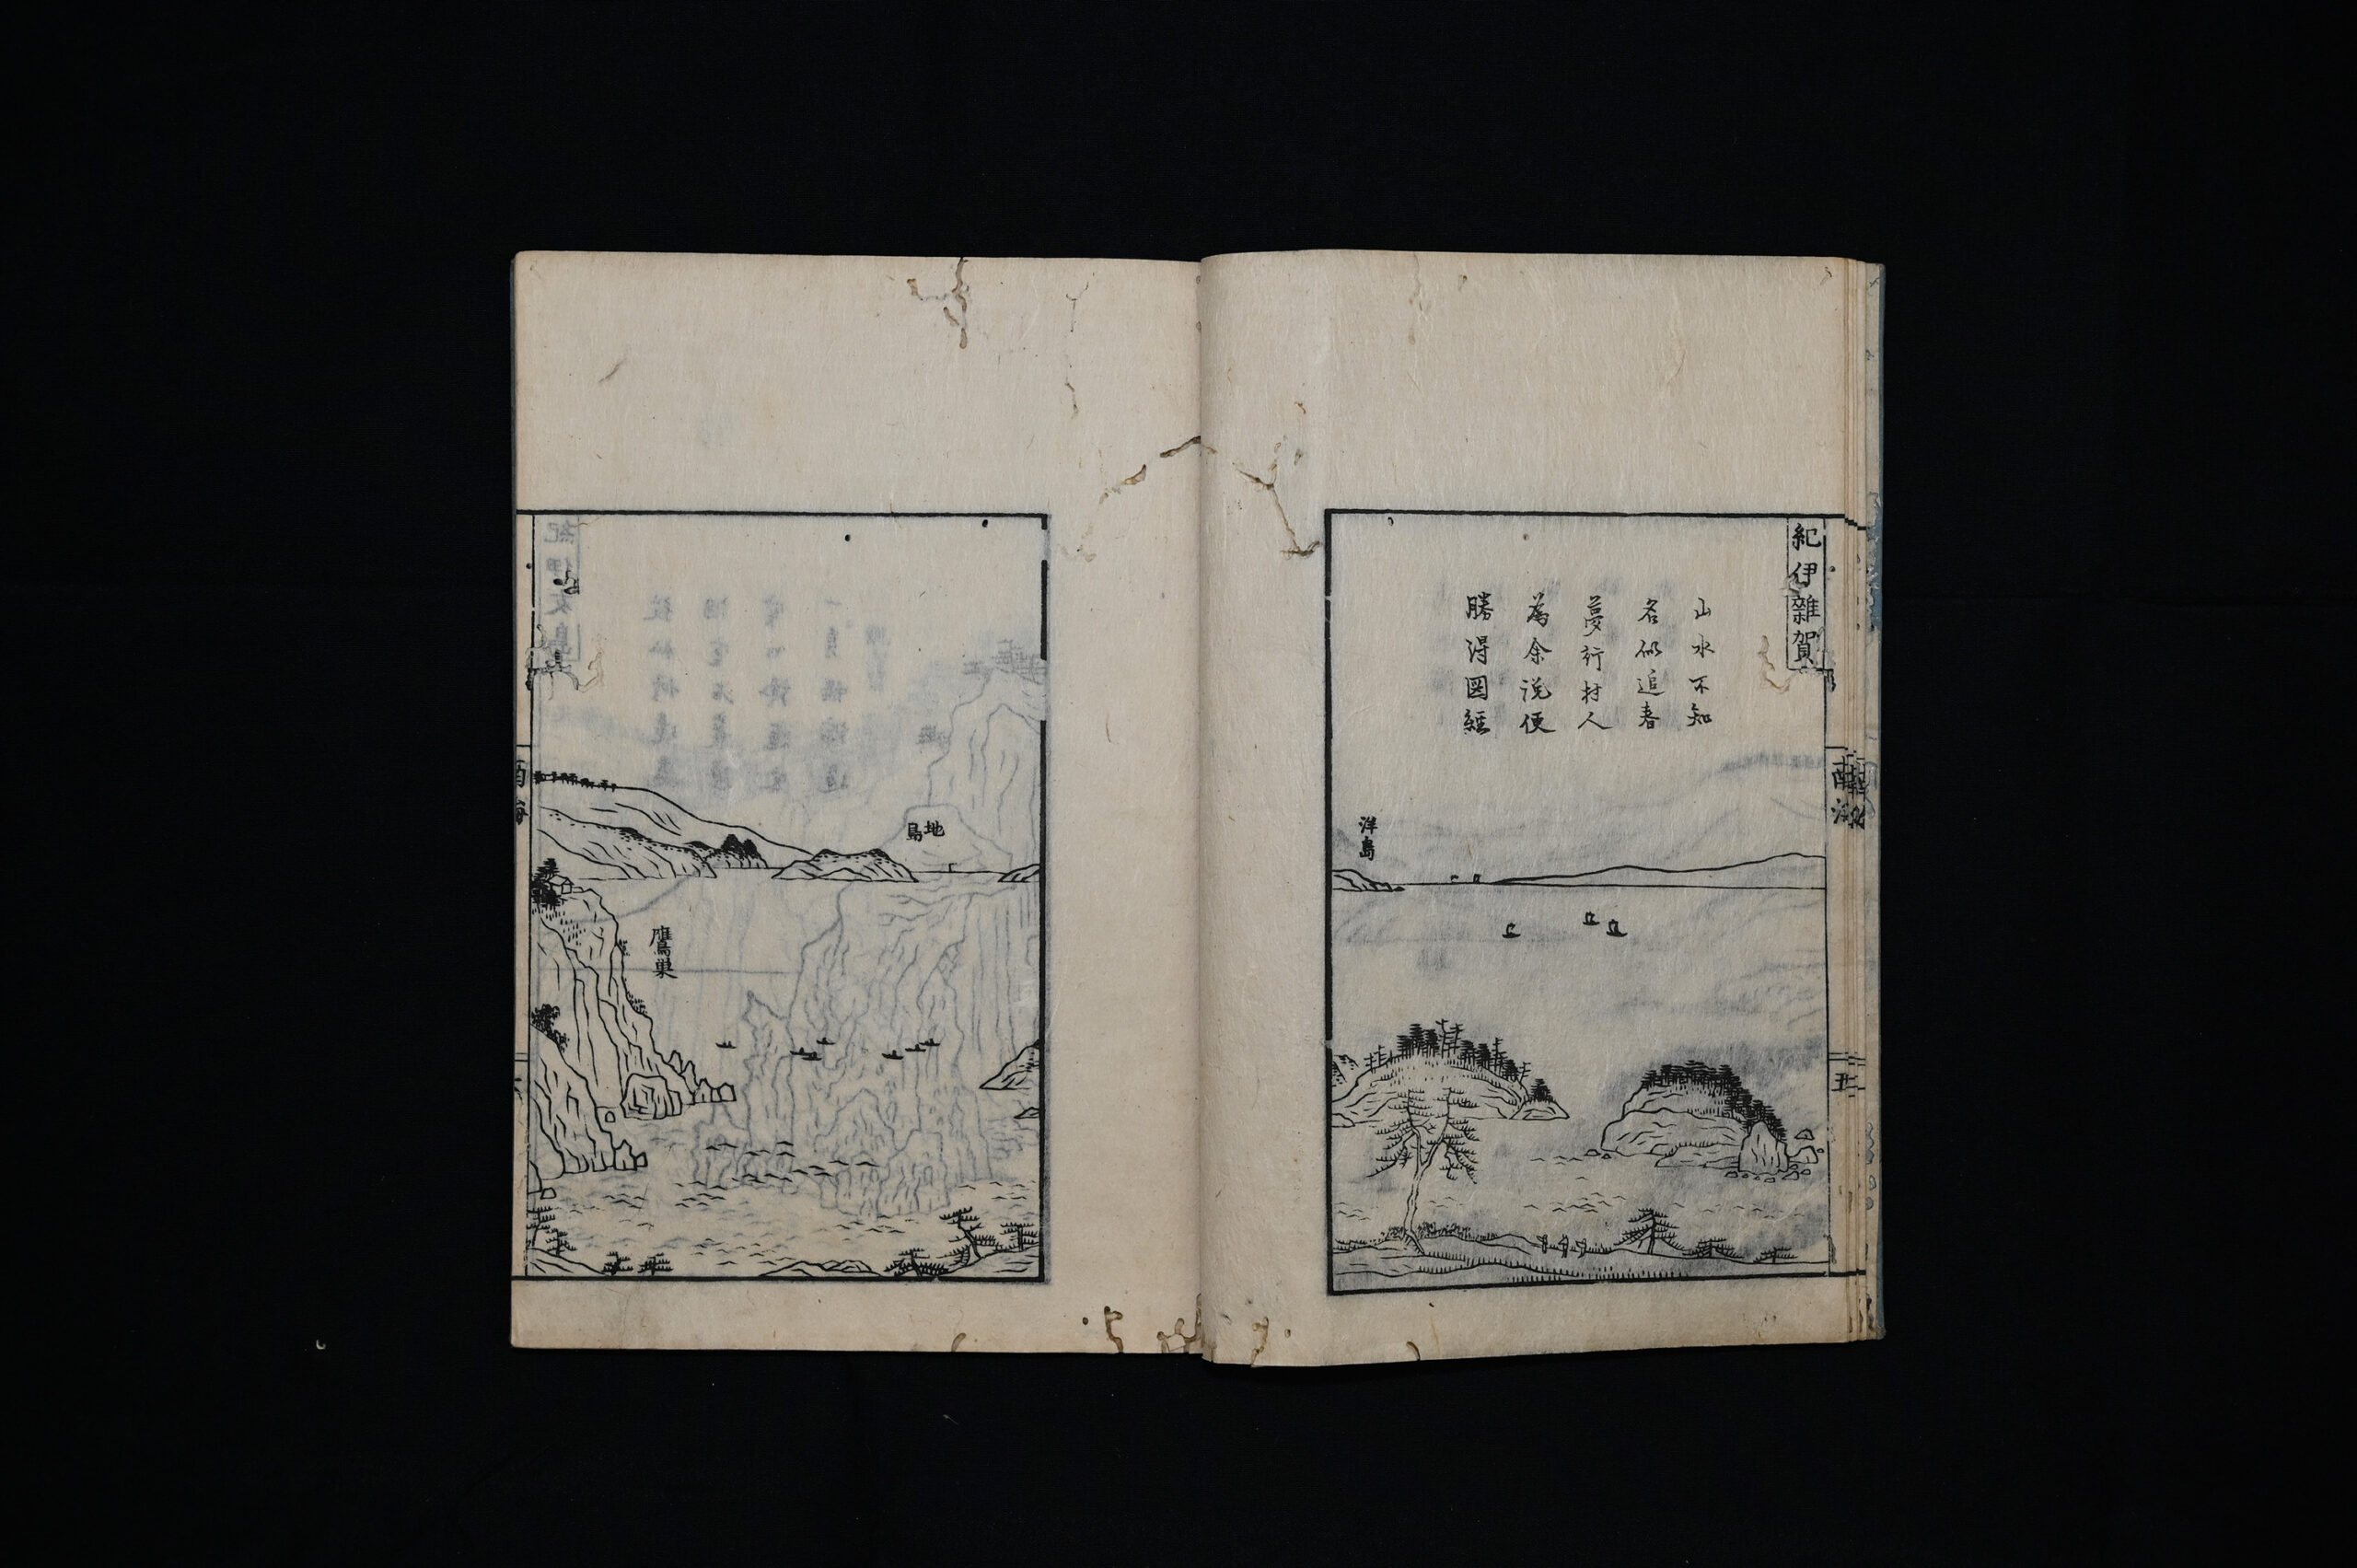 紀伊雜賀
山水不知
名似追春
夢行村人
為余说便
勝得図經
洋島
地島
鷹巣